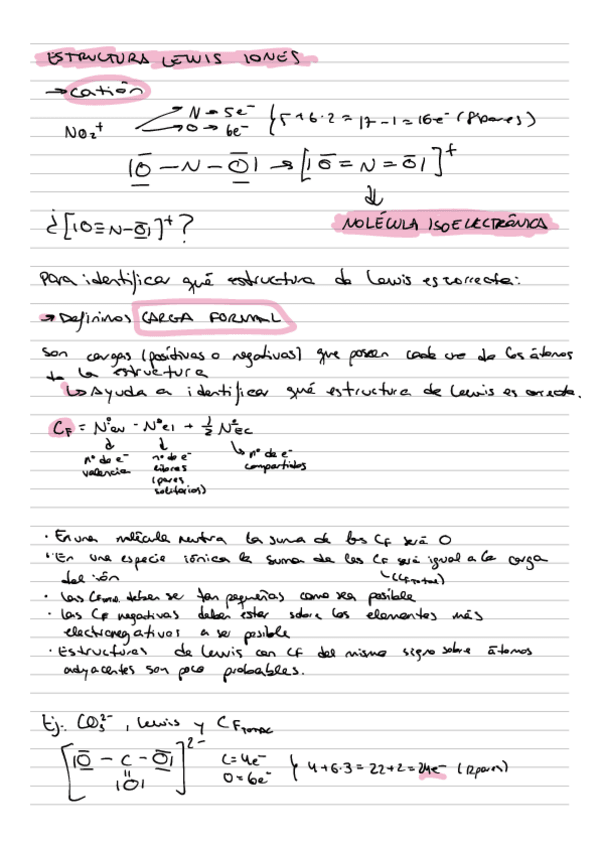 ESTRUCTURA LEWIS IONES
→ catión
NO₂⁺ → N → 5e⁻ { 5+6·2 = 17-1 = 16e⁻ (8 pares)
→ O → 6e⁻
|O̅ - N - O̅| → [|O̅ = N = O̅|]⁺
⇓
¿[|O≡N-O̅|]⁺? MOLÉCULA ISOELECTRÓNICA
Para identificar qué estructura de Lewis es correcta:
→ Definimos CARGA FORMAL
Son cargas (positivas o negativas) que poseen cada uno de los átomos
de la estructura
↳ Ayuda a identificar qué estructura de Lewis es correcta.
C_F = Nºev - Nºel + ½ NºEC
nº de e⁻ valencia
nº de e⁻ libres (pares solitarios)
↳ nº de e⁻ compartidos
· En una molécula neutra la suma de las CF será 0
· En una especie iónica la suma de las CF será igual a la carga
del ión (CF total)
· las CF deben ser tan pequeñas como sea posible
· las CF negativas deben estar sobre los elementos más
electronegativos a ser posible
· Estructuras de Lewis con CF del mismo signo sobre átomos
adyacentes son poco probables.
Ej: CO₃²⁻, Lewis y CF TOTAL
[|O̅ - C - O̅|]²⁻ C=4e⁻ } 4+6·3 = 22+2 = 24e⁻ (12 pares)
|O| O=6e⁻